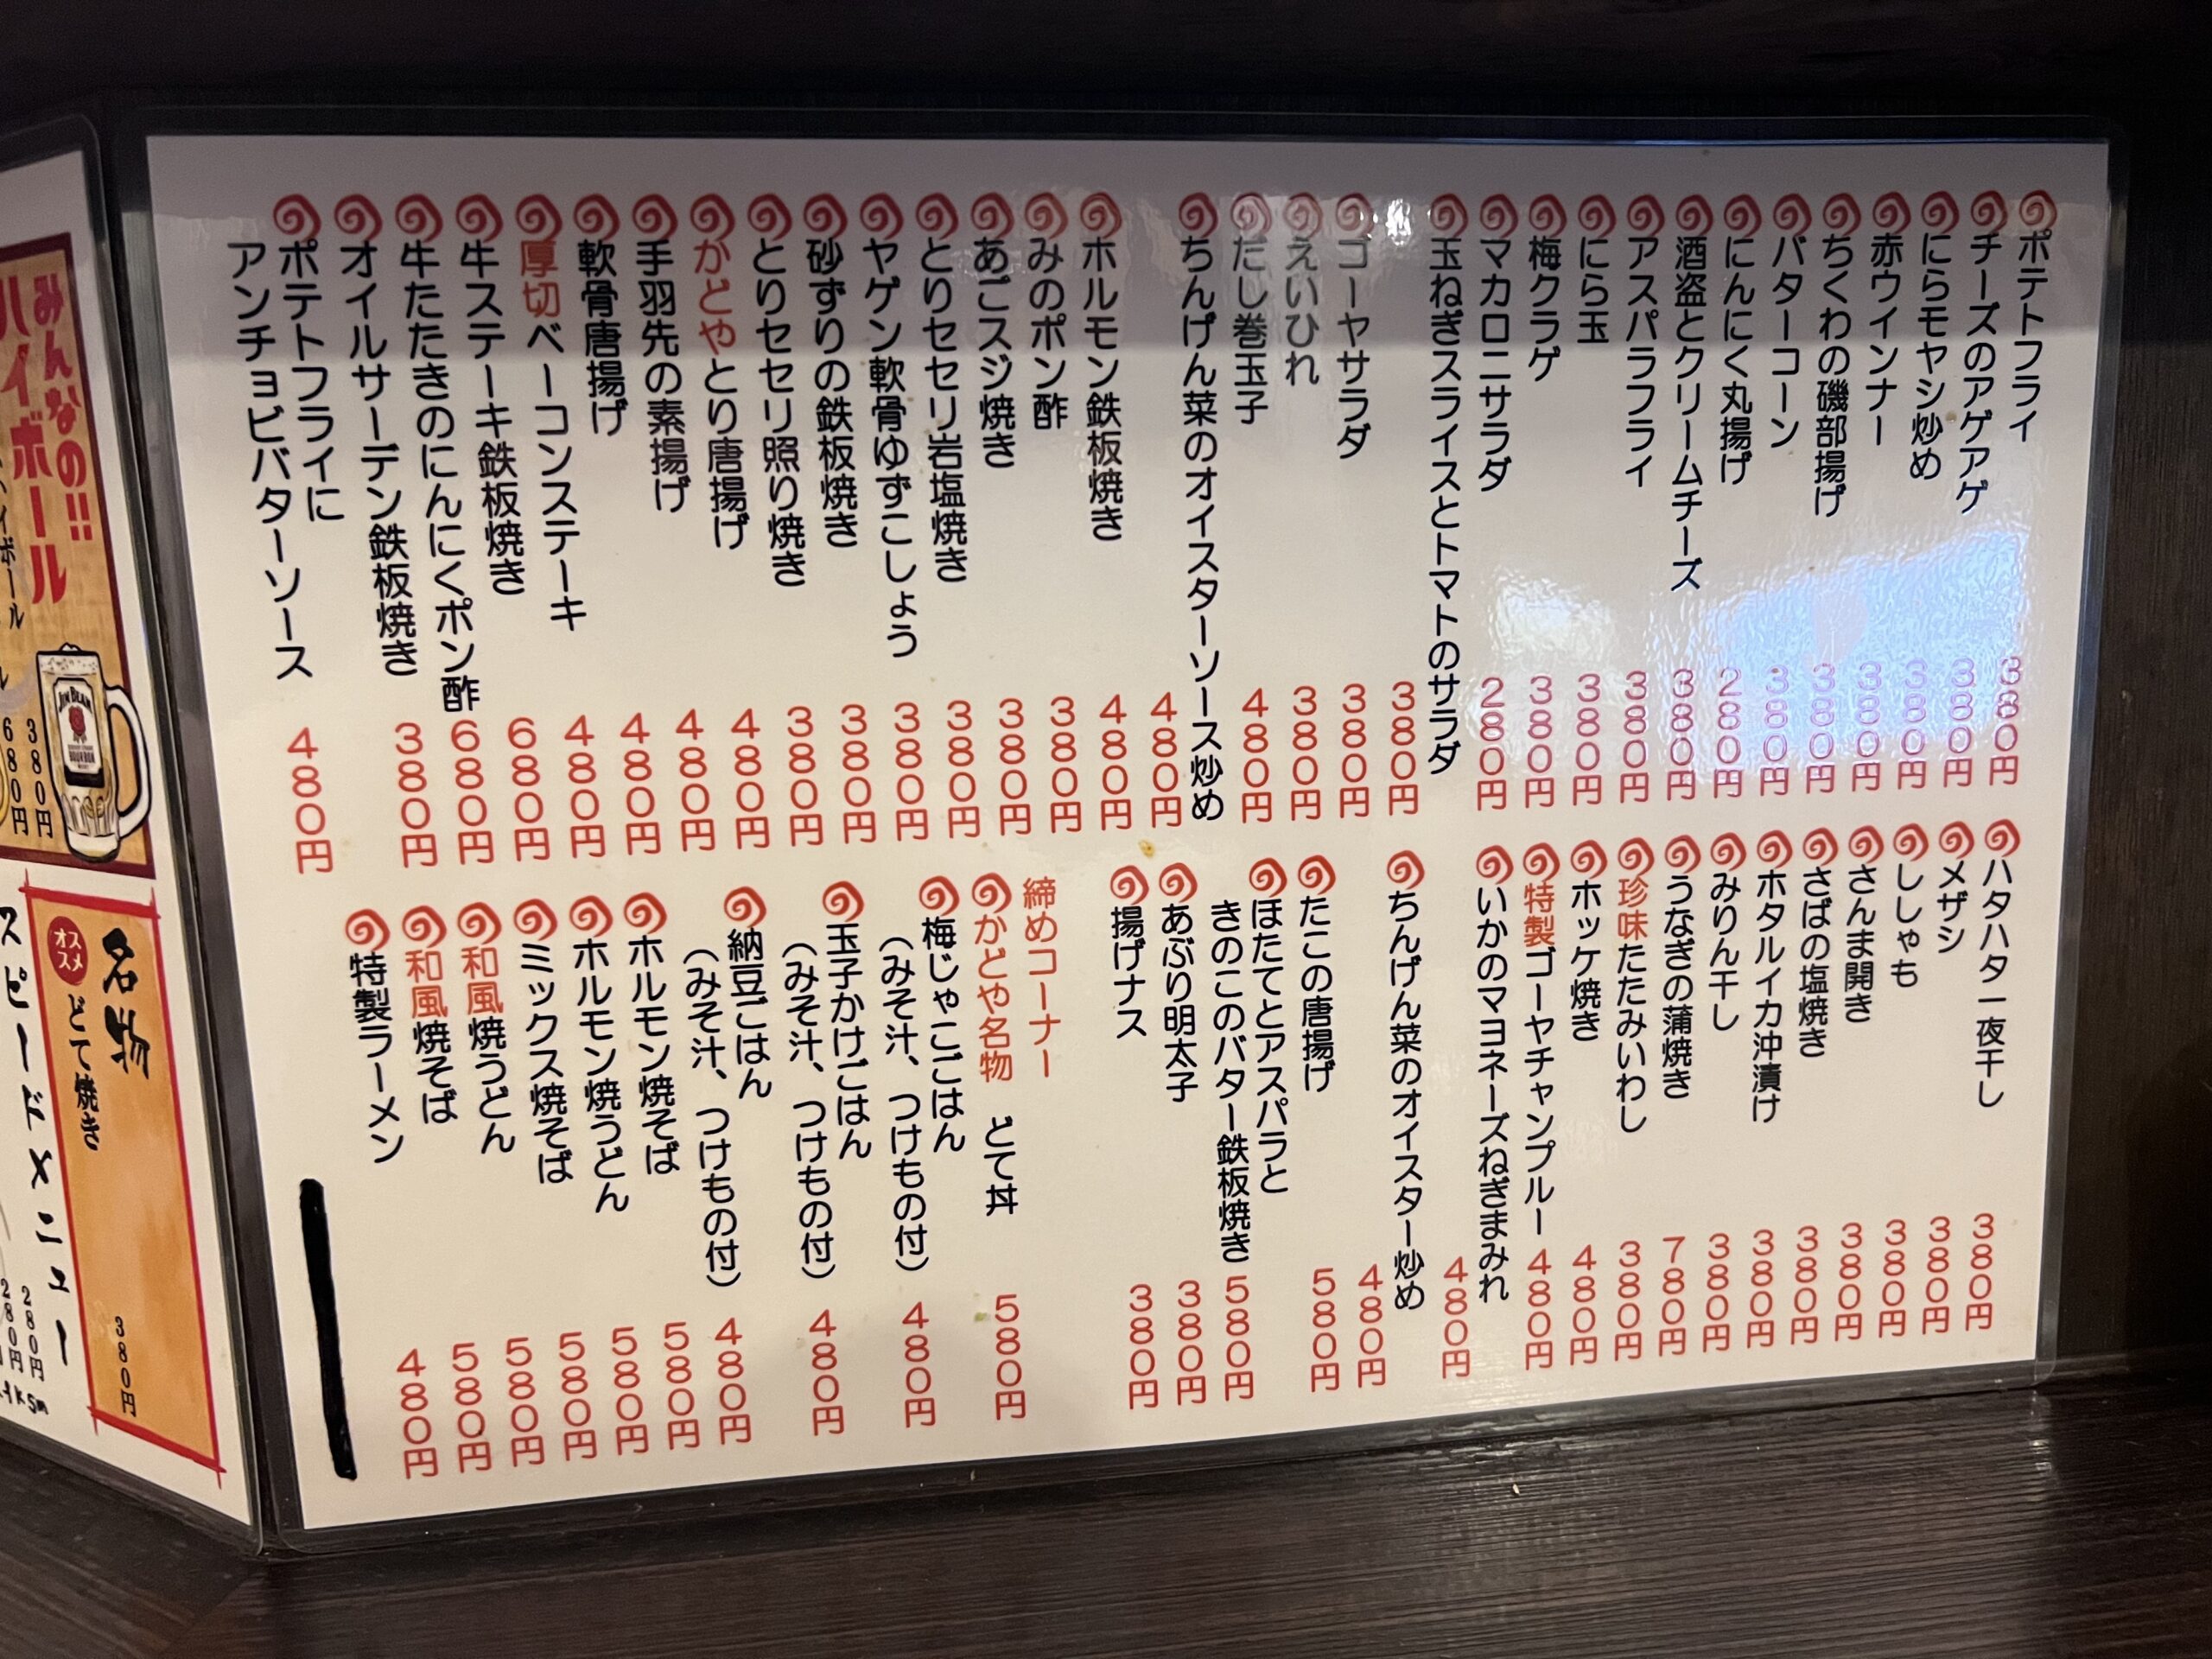 ポテトフライ 380円
チーズのアゲアゲ 380円
にらモヤシ炒め 380円
赤ウインナー 380円
ちくわの磯部揚げ 380円
バターコーン 380円
にんにく丸揚げ 280円
酒盗とクリームチーズ 380円
アスパラフライ 380円
にら玉 380円
梅クラゲ 380円
マカロニサラダ 280円
玉ねぎスライスとトマトのサラダ 380円
ゴーヤサラダ 380円
えいひれ 380円
だし巻玉子 480円
ちんげん菜のオイスターソース炒め 480円
ホルモン鉄板焼き 480円
みのポン酢 380円
あごスジ焼き 380円
とりセセリ岩塩焼き 380円
ヤゲン軟骨ゆずこしょう 380円
砂ずりの鉄板焼き 380円
とりセセリ照り焼き 380円
かどやとり唐揚げ 480円
手羽先の素揚げ 480円
軟骨唐揚げ 480円
厚切ベーコンステーキ 480円
牛ステーキ鉄板焼き 680円
牛たたきのにんにくポン酢 680円
オイルサーデン鉄板焼き 380円
ポテトフライに
アンチョビバターソース 480円
ハタハタ一夜干し 380円
メザシ 380円
ししゃも 380円
さんま開き 380円
さばの塩焼き 380円
ホタルイカ沖漬け 380円
みりん干し 380円
うなぎの蒲焼き 780円
珍味たたみいわし 380円
ホッケ焼き 480円
特製ゴーヤチャンプルー 480円
いかのマヨネーズねぎまみれ 480円
ちんげん菜のオイスター炒め 480円
たこの唐揚げ 580円
ほたてとアスパラと
きのこのバター鉄板焼き 580円
あぶり明太子 380円
揚げナス 380円
締めコーナー
かどや名物 どて丼 580円
梅じゃこごはん
（みそ汁、つけもの付） 480円
玉子かけごはん
（みそ汁、つけもの付） 480円
納豆ごはん
（みそ汁、つけもの付） 480円
ホルモン焼そば 580円
ホルモン焼うどん 580円
ミックス焼そば 580円
和風焼うどん 580円
和風焼そば 580円
特製ラーメン 480円
みんなの!!
ハイボール
380円
680円
JIM BEAM
BOURBON
名物
オススメ
どて焼き 380円
スピードメニュー
280円
280円